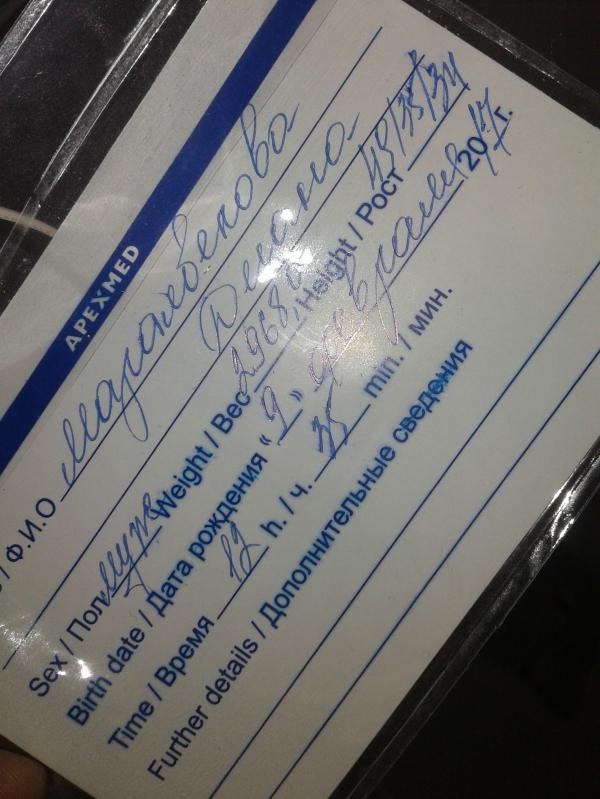 APEXMED
/ Ф.И.О Маратбекова
Диана
Sex / Пол муж Weight / Вес 2968, Height / Рост 49/35/34
Birth date / Дата рождения "9" февраля 2017 г.
Time / Время 12 h. / ч. 35 min. / мин.
Further details / Дополнительные сведения